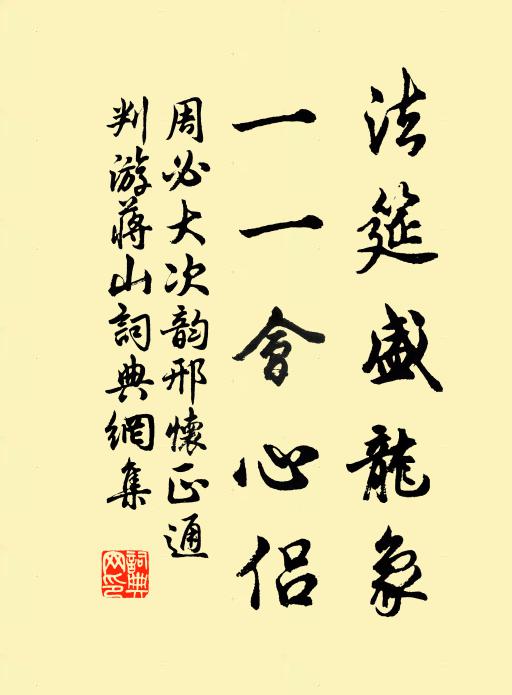 法筵盛龍象
一一會心侶
周必大次韵邢懷正通
判游蔣山詞典網集
詞典
网印